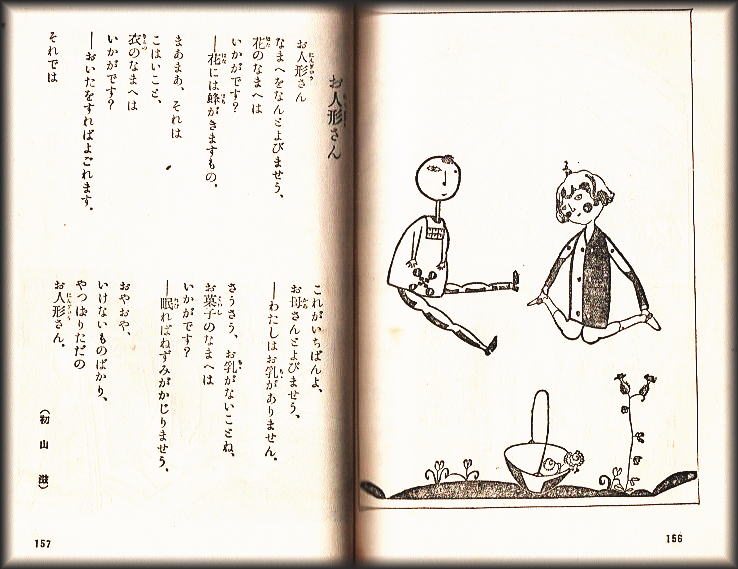 156
お人形さん
お人形さん
なまへをなんとよびませう、
花のなまへは
いかがです?
―花には蜂がきますもの。
まあまあ、それは
こはいこと、
衣のなまへは
いかがです?
―おいたをすればよごれます。
それでは
これがいちばんよ、
お母さんとよびませう、
―わたしはお乳がありません。
さうさう、お乳がないことね、
お菓子のなまへは
いかがです?
―眠ればねずみがかじりませう。
おやおや、
いけないものばかり、
やつぱりただの
お人形さん。
(初山滋)
157